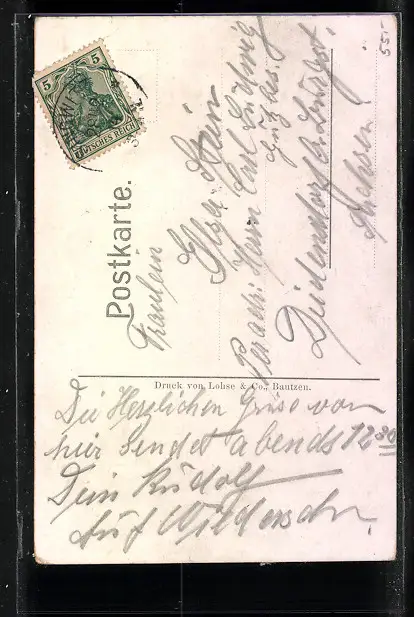 55.-
5
DEUTSCHES REICH
Postkarte.
Fräulein
Elsa
Herrn Carl Ludwig
Gutsbes.
Sachsen
Druck von Lohse & Co., Bautzen.
Die Herzlichen Grüse von
hier Sendet abends 12 30
Dein Rudolf
Auf Wiedersehn.